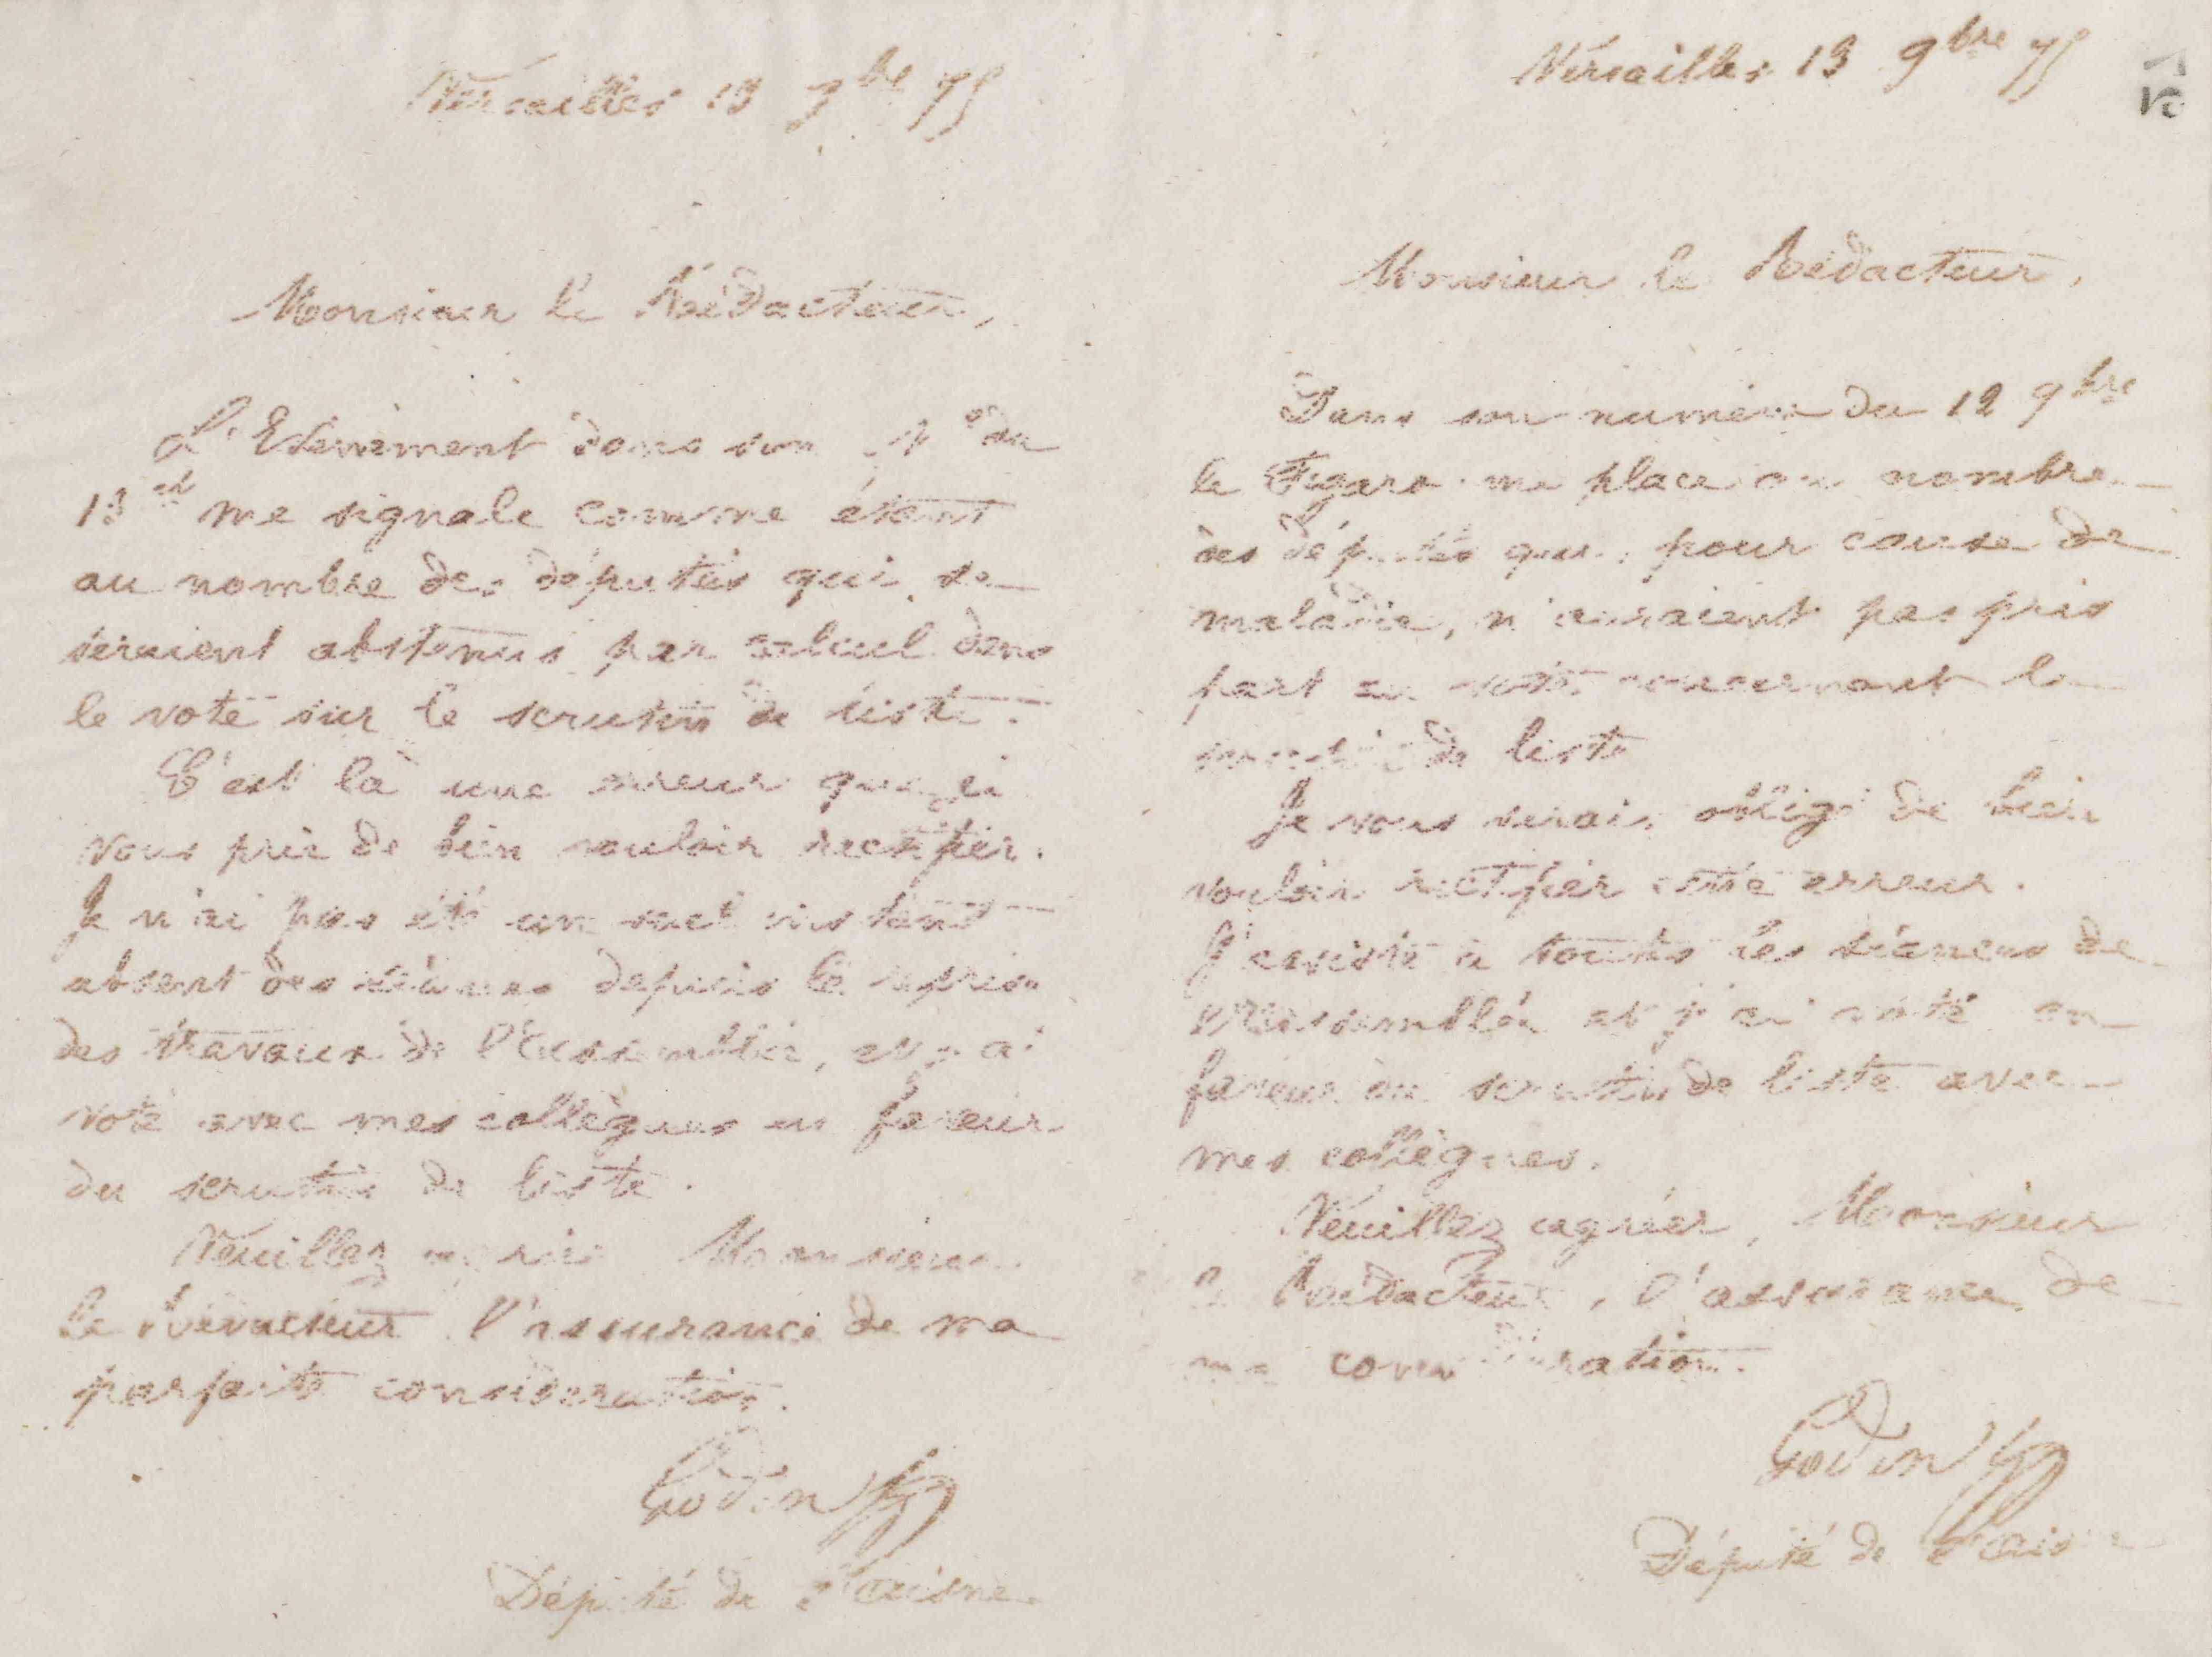 Versailles 13 9bre 75
Monsieur le Rédacteur,
L'Evènement dans son N° du
13 et me signale comme étant
au nombre des députés qui se
seraient abstenus par calcul dans
le vote sur le scrutin de liste.
C'est là une erreur que je
vous prie de bien vouloir rectifier.
Je n'ai pas été un seul instant
absent des séances depuis la reprise
des travaux de l'Assemblée, et j'ai
voté avec mes collègues en faveur
du scrutin de liste.
Veuillez agréer Monsieur
le Rédacteur l'assurance de ma
parfaite considération.
Godin
Député de l'Aisne
Versailles 13 9bre 75
Monsieur le Rédacteur,
Dans son numéro du 12 9bre
le Figaro me place au nombre
des députés qui, pour cause de
maladie, n'auraient pas pris
part au vote concernant le
scrutin de liste
Je vous serais obligé de bien
vouloir rectifier cette erreur.
J'assiste à toutes les séances de
l'Assemblée et j'ai voté en
faveur du scrutin de liste avec
mes collègues.
Veuillez agréer, Monsieur
le Rédacteur, l'assurance de
ma considération.
Godin
Député de l'Aisne